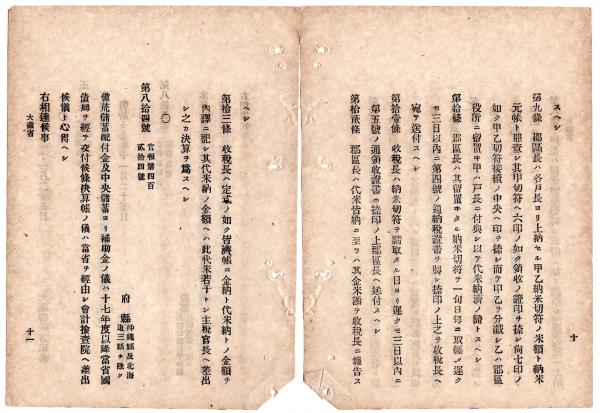 スヘシ
第九條 郡區長ハ各戸長ヨリ上納セル甲乙納米切符ノ米額ト納米
元帳ト照查シ其甲切符ヘ六印ノ如ク領收ノ證印ヲ捺シ尙七印ノ
如ク甲乙切符接續ノ中央ヘ印ヲ捺シ而テ甲乙ヲ分截シ乙ハ郡區
役所ニ留置キ甲ハ戸長ニ付與シ以テ代米納濟ノ證トスヘシ
第拾條 郡區長ハ其留置キタル納米切符ヲ一旬日每ニ取纒メ遲ク
モ三日以內ニ第四號ノ通納稅證書ヲ製シ捺印ノ上之ヲ收稅長ヘ
宛テ送付スヘシ
第拾壹條 收稅長ハ納米切符ヲ請取タル日ヨリ遲クモ三日以內ニ
第五號ノ通領收證書ニ捺印ノ上郡區長ヘ送付スヘシ
第拾貳條 郡區長ハ代米皆納ニ至ラハ其金米額ヲ收稅長ニ報告ス
十
ヘシ
第拾三條 收稅長ハ定式ノ如ク皆濟帳ニ金納ト代米納トノ金額ヲ
內譯ニ記シ其代米納ノ金額ヘハ此代米若干トシ主稅官長ヘ差出
シ之カ決算ヲ爲スヘシ
〇
第八拾四號 官報第四百貳拾四號
府縣 沖繩縣及北海道三縣ヲ除ク
備荒儲蓄配付金及中央儲蓄ヨリ補助金ノ儀ハ十七年度以降當省國
債局ヲ經テ交付候條決算帳ノ儀ハ當省ヲ經由シ會計檢查院ヘ差出
候儀ト心得ヘシ
右相達候事
大藏省
十一